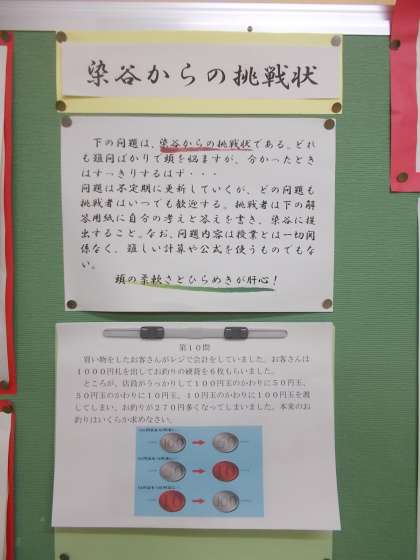 染谷からの挑戦状
下の問題は、染谷からの挑戦状である。どれ
も難問ばかりで頭を悩ますが、分かったとき
はすっきりするはず・・・
問題は不定期に更新していくが、どの問題も
挑戦者はいつでも歓迎する。挑戦者は下の解
答用紙に自分の考えと答えを書き、染谷に提
出すること。なお、問題内容は授業とは一切関
係なく、難しい計算や公式を使うものでもな
い。
頭の柔軟さとひらめきが肝心!
第10問
買い物をしたお客さんがレジで会計をしていました。お客さんは
1000円札を出してお釣りの硬貨を6枚もらいました。
ところが、店員がうっかりして100円玉のかわりに50円玉、
50円玉のかわりに10円玉、10円玉のかわりに100円玉を渡
してしまい、お釣りが270円多くなってしまいました。本来のお
釣りはいくらか求めなさい。